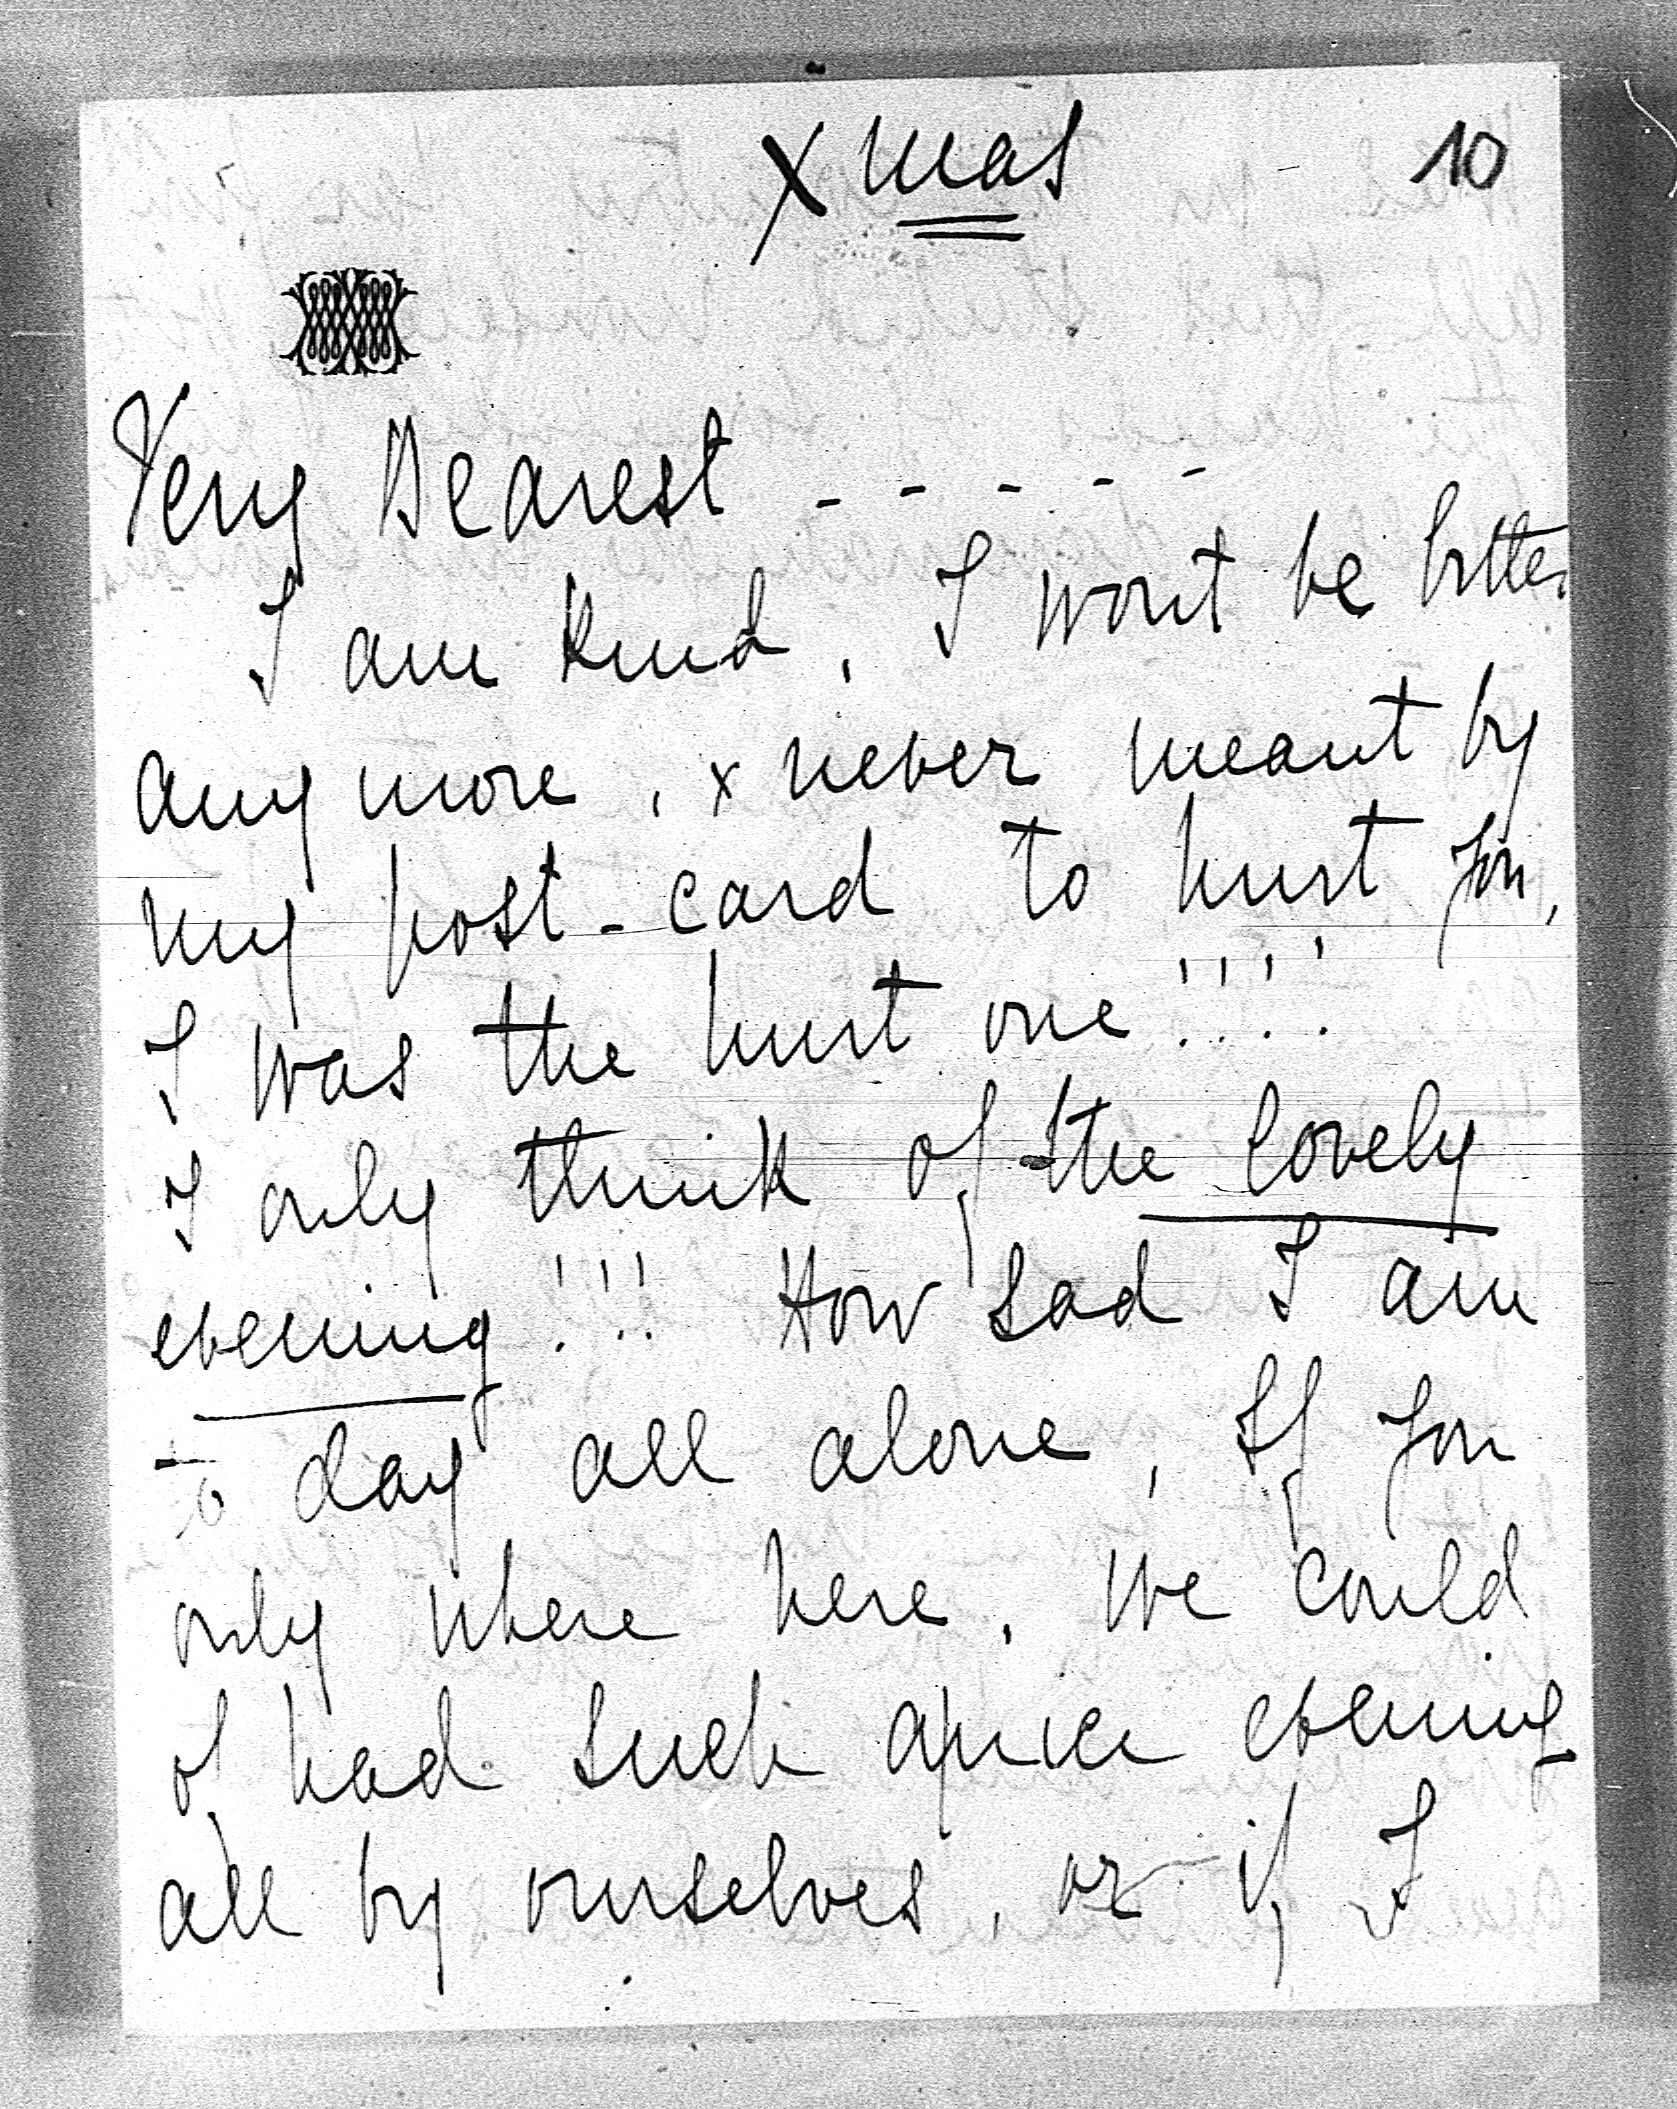 Xmas 10
Very Dearest - - - - -
I am kind, I wont be bitter
any more, x never meant by
my post-card to hurt you,
I was the hurt one!!!!
I only think of the lovely
evening!!! How sad I am
to day all alone, If you
only where here, we could
of had such a nice evening
all by ourselves, or if I